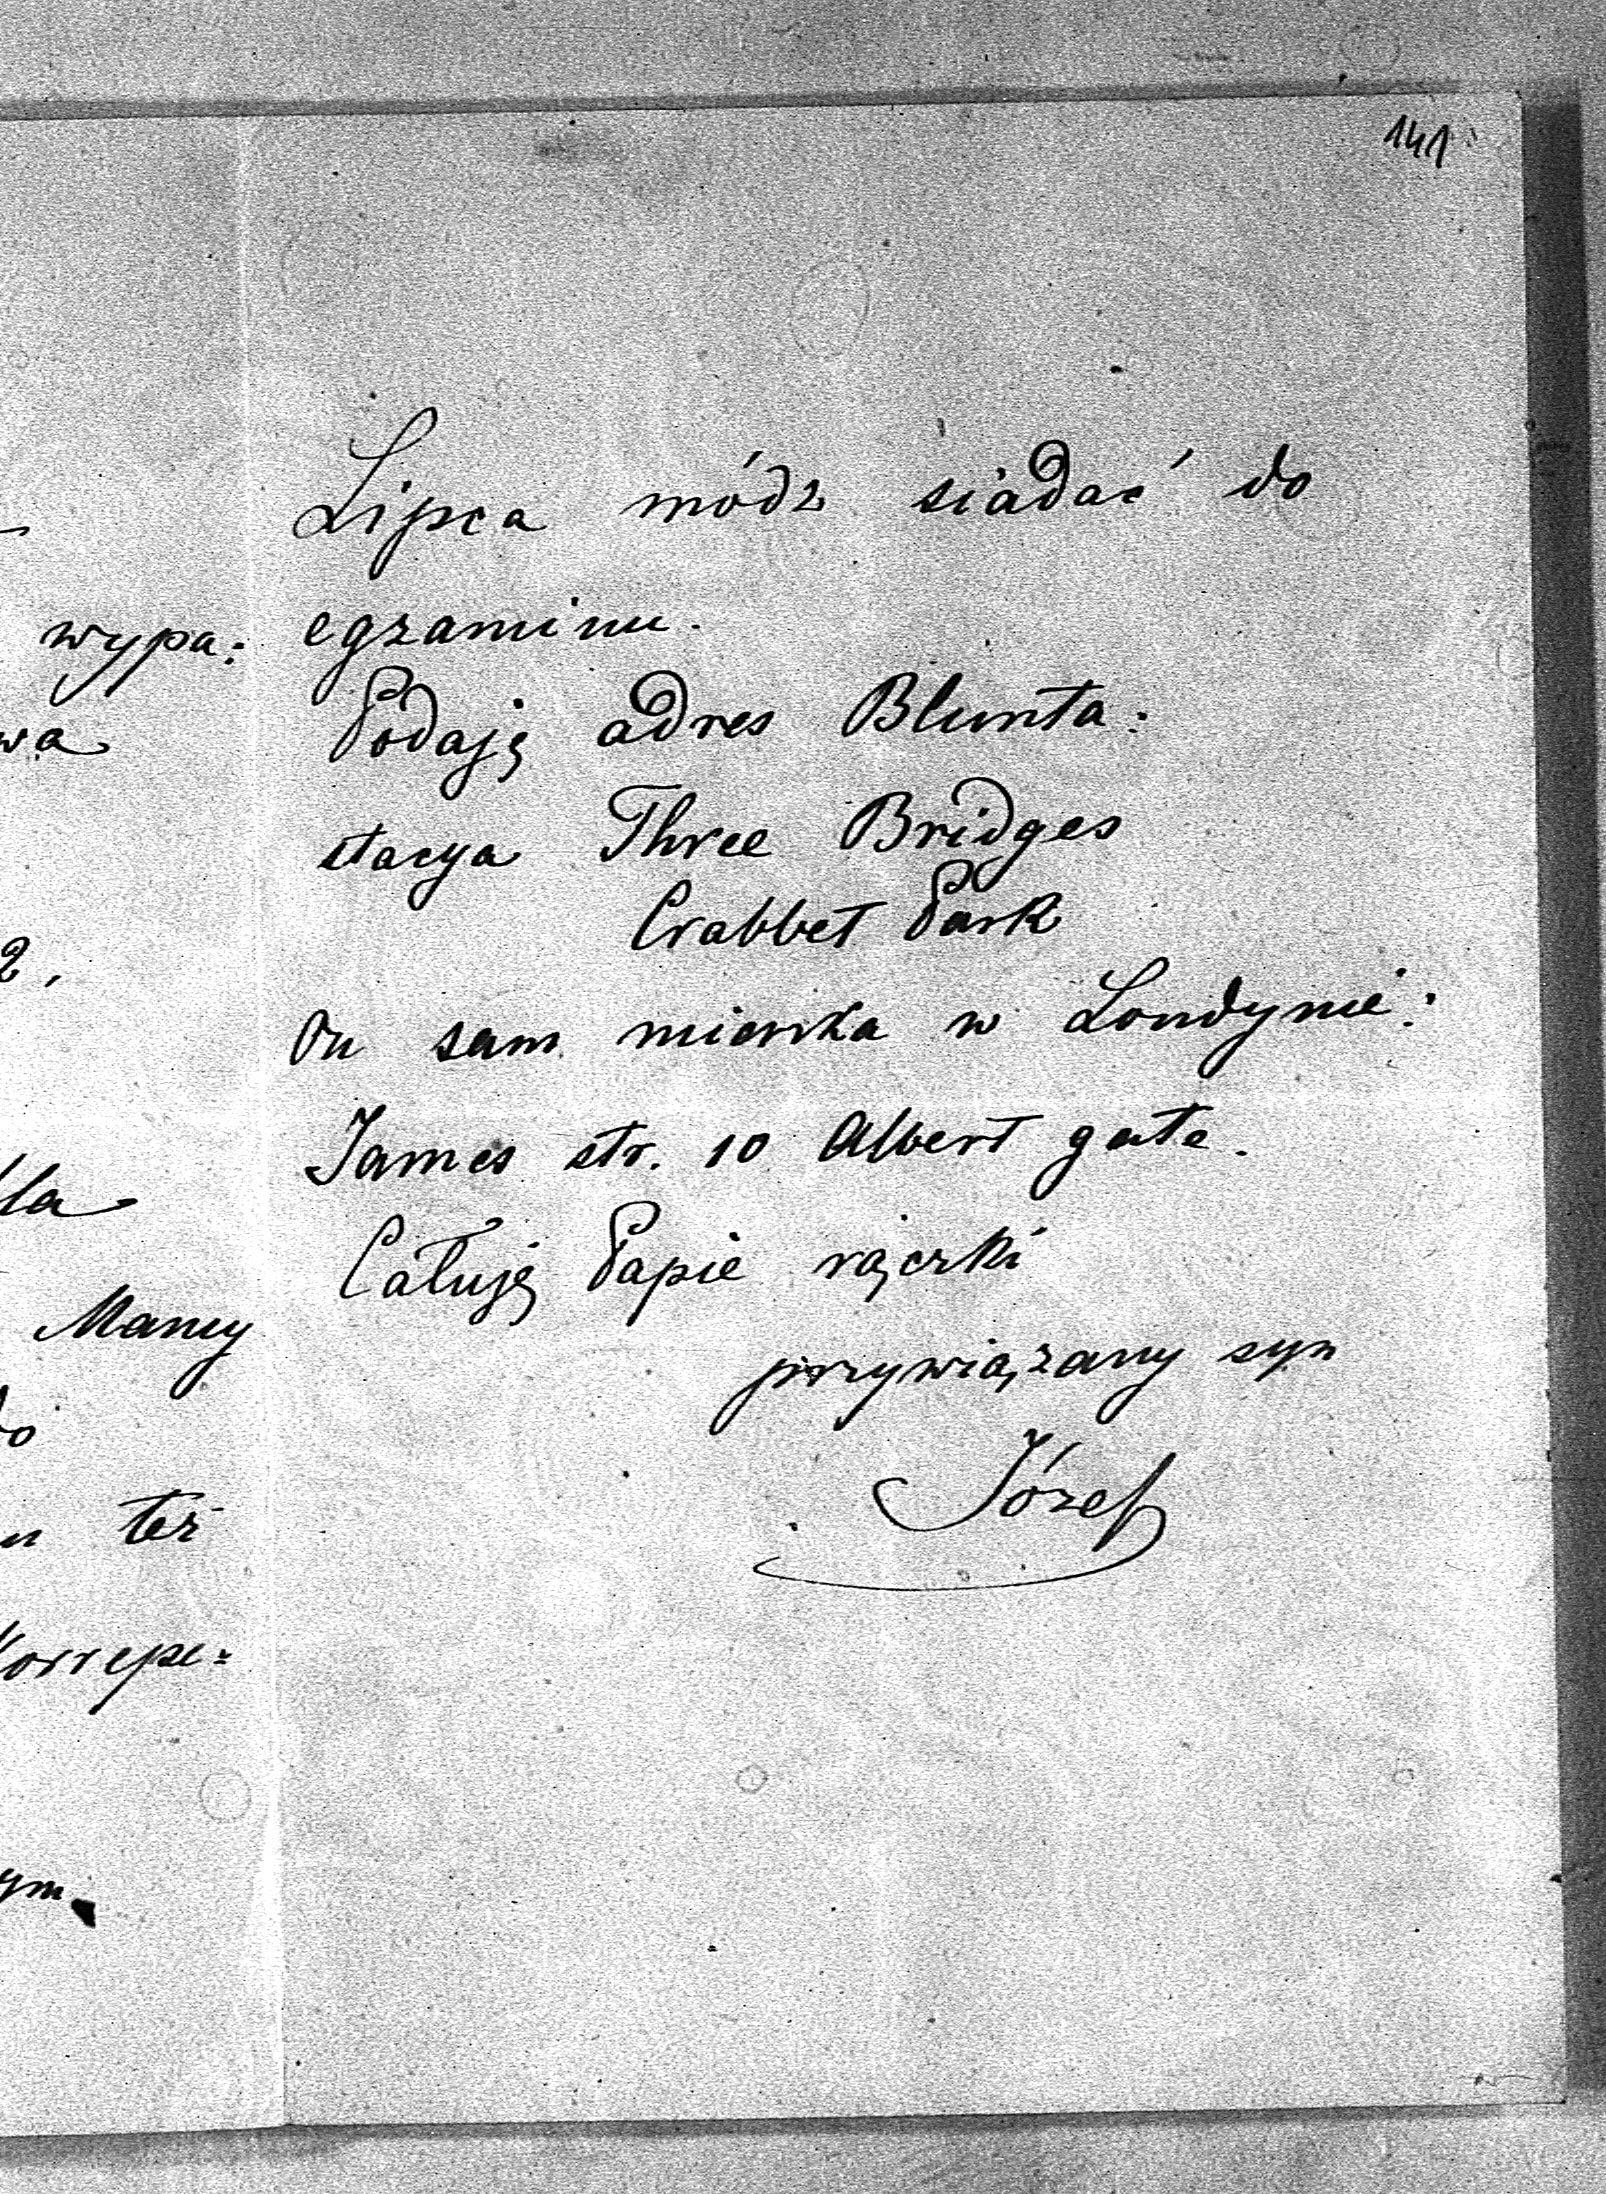 141
Lipca módz siadać do
egzaminu.
Podaję adres Blunta:
stacya Three Bridges
Crabbet Park
On sam mieszka w Londynie:
James str. 10 Albert gate.
Całuję Papie rączki
przywiązany syn
Józef
wypa:
wa
2,
la
Mamy
do
też
orrepe=
ym